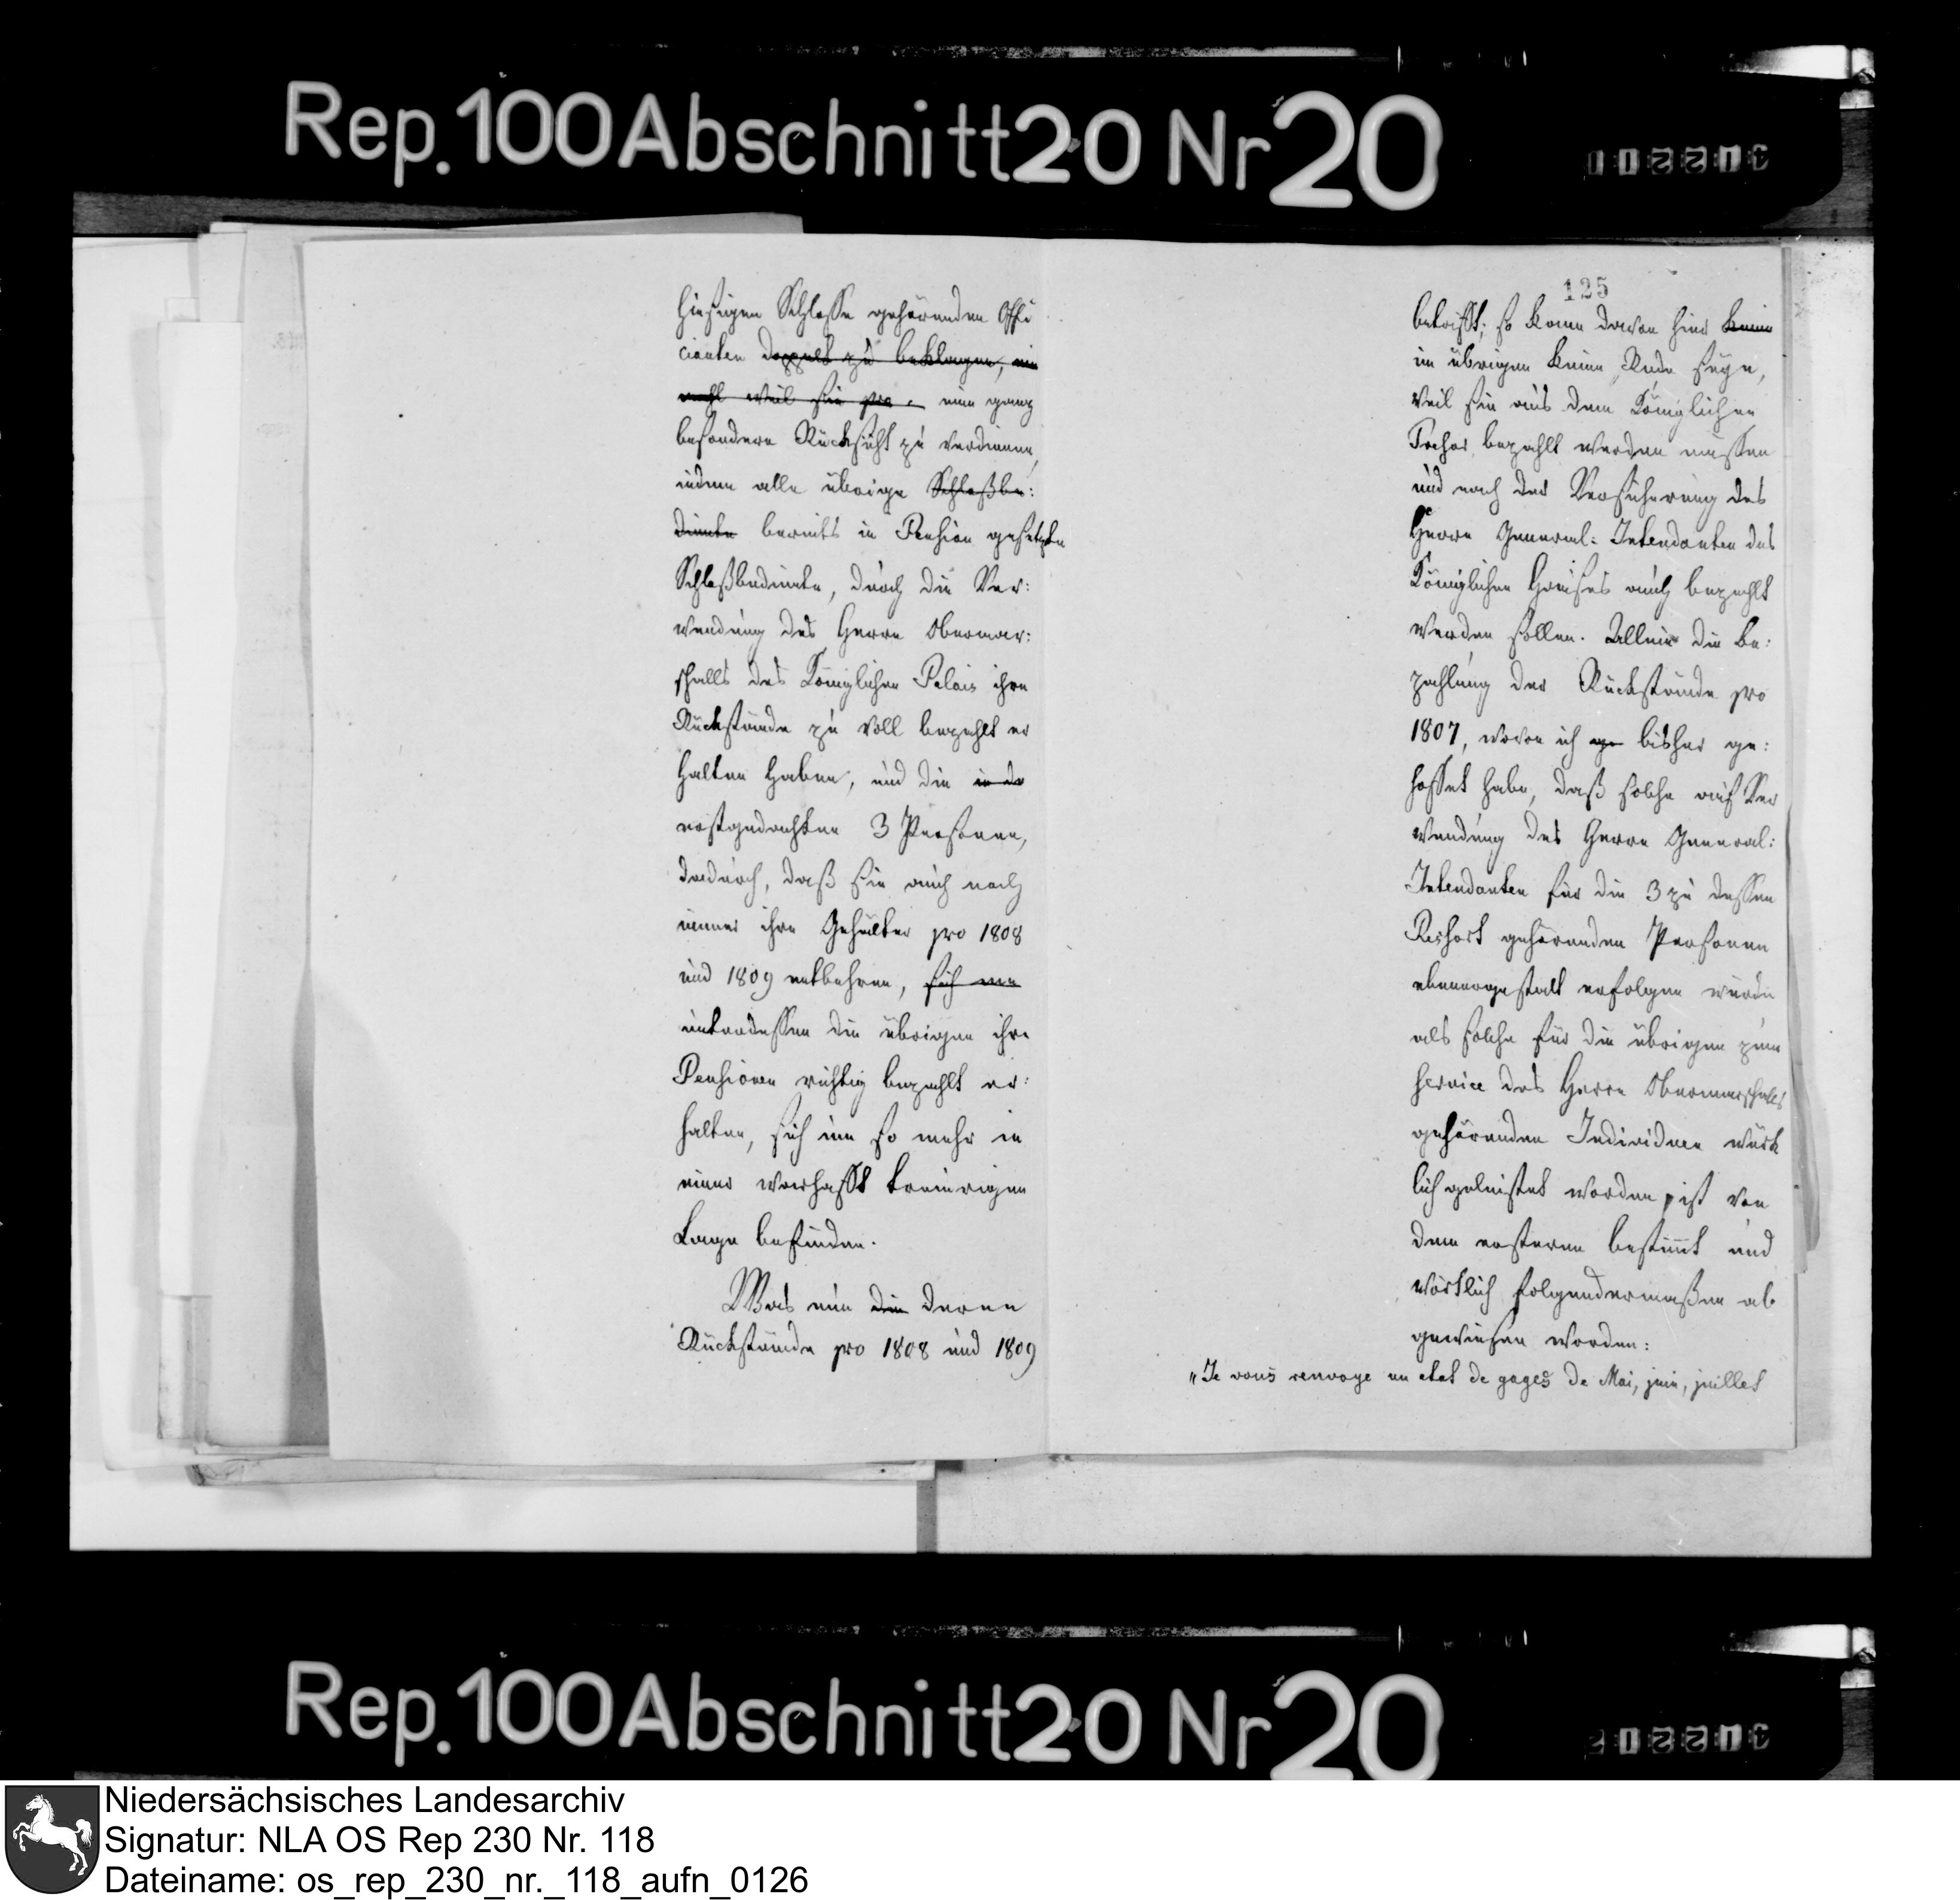 Rep. 100 Abschnitt 20 Nr 20
hiesigen Schlosse gehörenden Offi
cianten doppelt zu beklagen, ein
mahl weil sie pro. eine ganz
besondere Rücksicht zu verdienen,
indem alle übrige Schloßbe:
diente bereits in Pension gesetzte
Schloßbediente, durch die Ver:
wendung des Herrn Obermar:
schalls des Königlichen Palais ihre
Rückstände zu voll bezahlt er
halten haben, und die
erstgedachten 3 Personen,
dadurch, daß sie auch noch
immer ihre Gehälter pro 1808
und 1809 entbehren, sich
unterdessen die übrigen ihre
Pensionen richtig bezahlt er:
halten, sich um so mehr in
einer wahrhafft traurigen
Lage befinden.
Was nun die deren
Rückstände pro 1808 und 1809
125
betrifft; so kann davon hier keine
im übrigen keine Rede seyn,
weil sie aus dem Königlichen
Trésor bezahlt werden müssen
und nach der Versicherung des
Herrn General: Intendanten des
Königlichen Hauses auch bezahlt
werden sollen. Allein die Be:
zahlung der Rückstände pro
1807, wovon ich ge bisher ge:
hoffet habe, daß solche auf Ver
wendung des Herrn General:
Intendanten für die 3 zu dessen
Ressort gehörenden Personen
ebenergestalt erfolgen würde
als solche für die übrigen zum
service des Herrn Obermarschalls
gehörenden Individuen würk
lich geleistet worden, ist von
dem ersteren bestimt und
wörtlich folgendermaßen ab
gewiesen worden:
„Je vous renvoye un etat de gages de Mai, juin, juillet
Rep. 100 Abschnitt 20 Nr 20
Niedersächsisches Landesarchiv
Signatur: NLA OS Rep 230 Nr. 118
Dateiname: os_rep_230_nr._118_aufn_0126